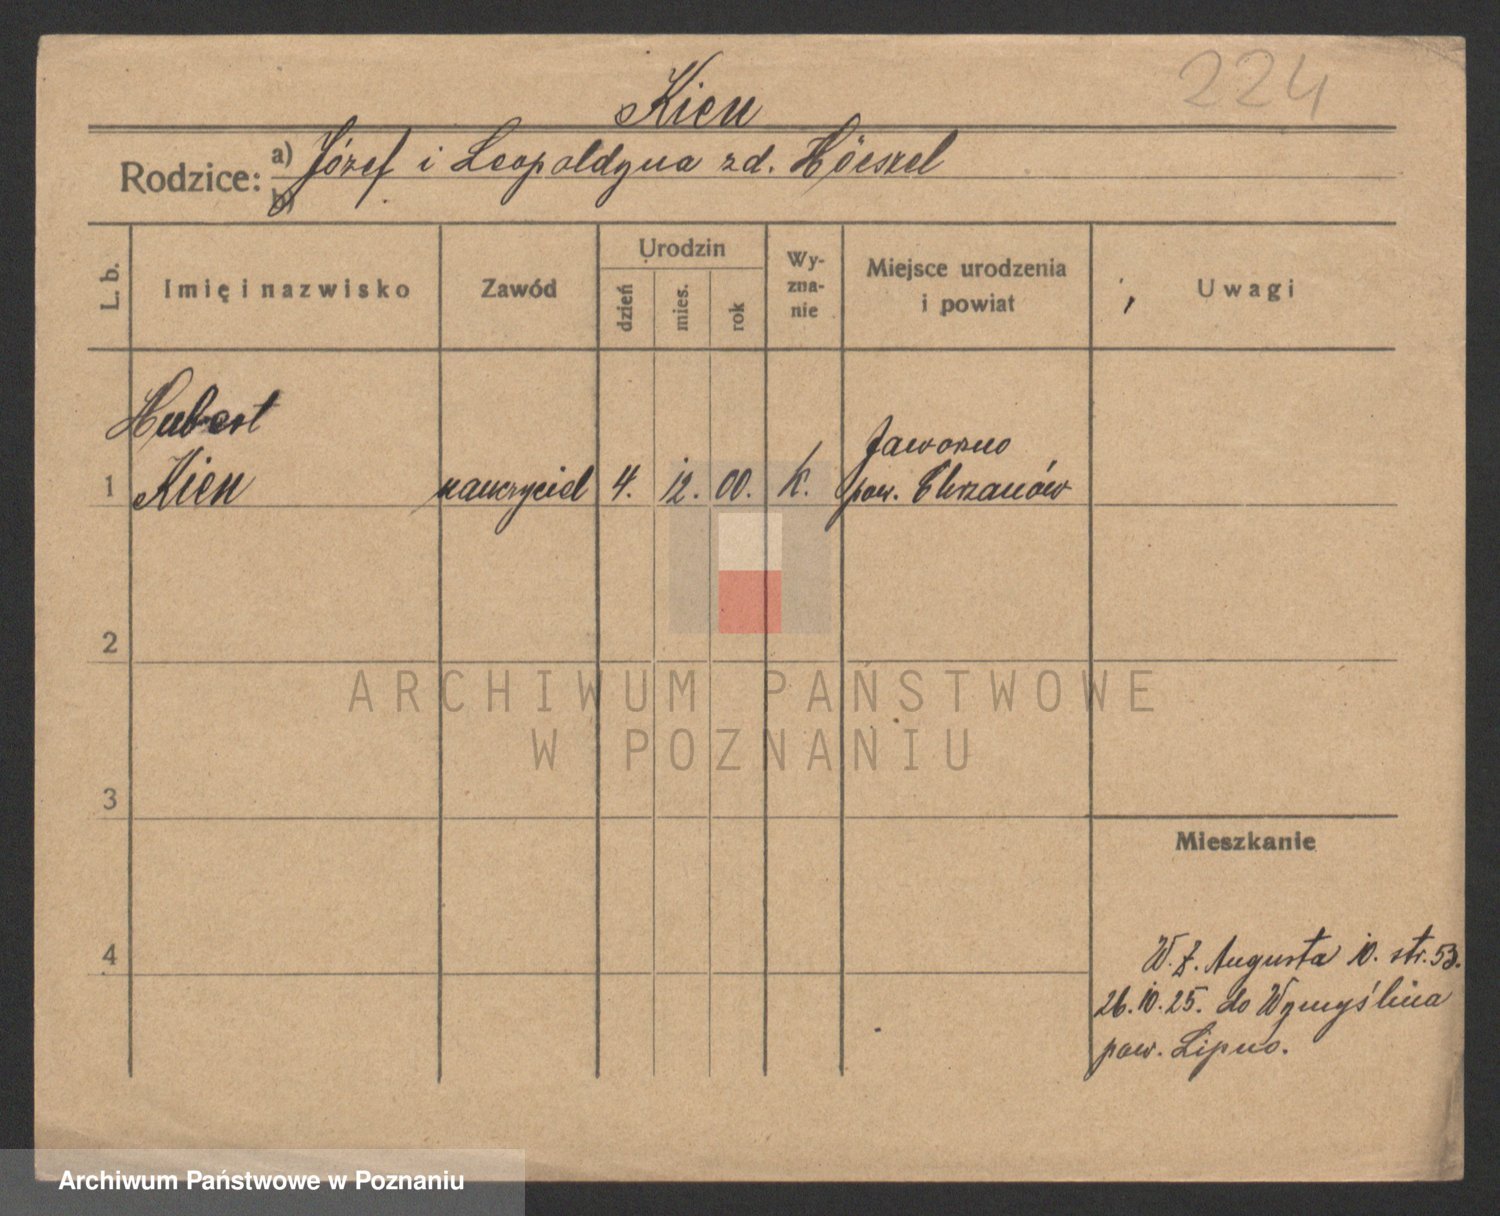 224
Kien
Rodzice: a) Józef i Leopoldyna zd. Höeszel
b)
L. b.
Imię i nazwisko
Zawód
Urodzin
dzień
mies.
rok
Wy-
zna-
nie
Miejsce urodzenia
i powiat
Uwagi
Hubert
Jaworzno
1 Kien nauczyciel 4. 12. 00. K. pow. Chrzanów
2
3
4
ARCHIWUM PAŃSTWOWE
W POZNANIU
Mieszkanie
W. Z. Augusta 10. str. 53.
26.10.25. do Wymyślina
pow. Lipno.
Archiwum Państwowe w Poznaniu